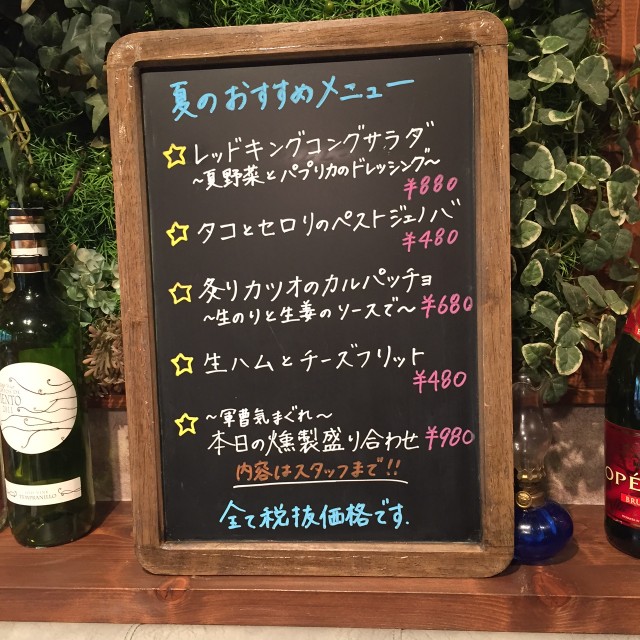 夏のおすすめメニュー
レッドキングコングサラダ
～夏野菜とパプリカのドレッシング～
¥880
タコとセロリのペストジェノバ
¥480
炙りカツオのカルパッチョ
～生のりと生姜のソースで～ ¥680
生ハムとチーズフリット
¥480
～軍曹気まぐれ～
本日の燻製盛り合わせ ¥980
内容はスタッフまで!!
全て税抜価格です.
VENTO
TEMPRANILLO
OPÉ
BRU